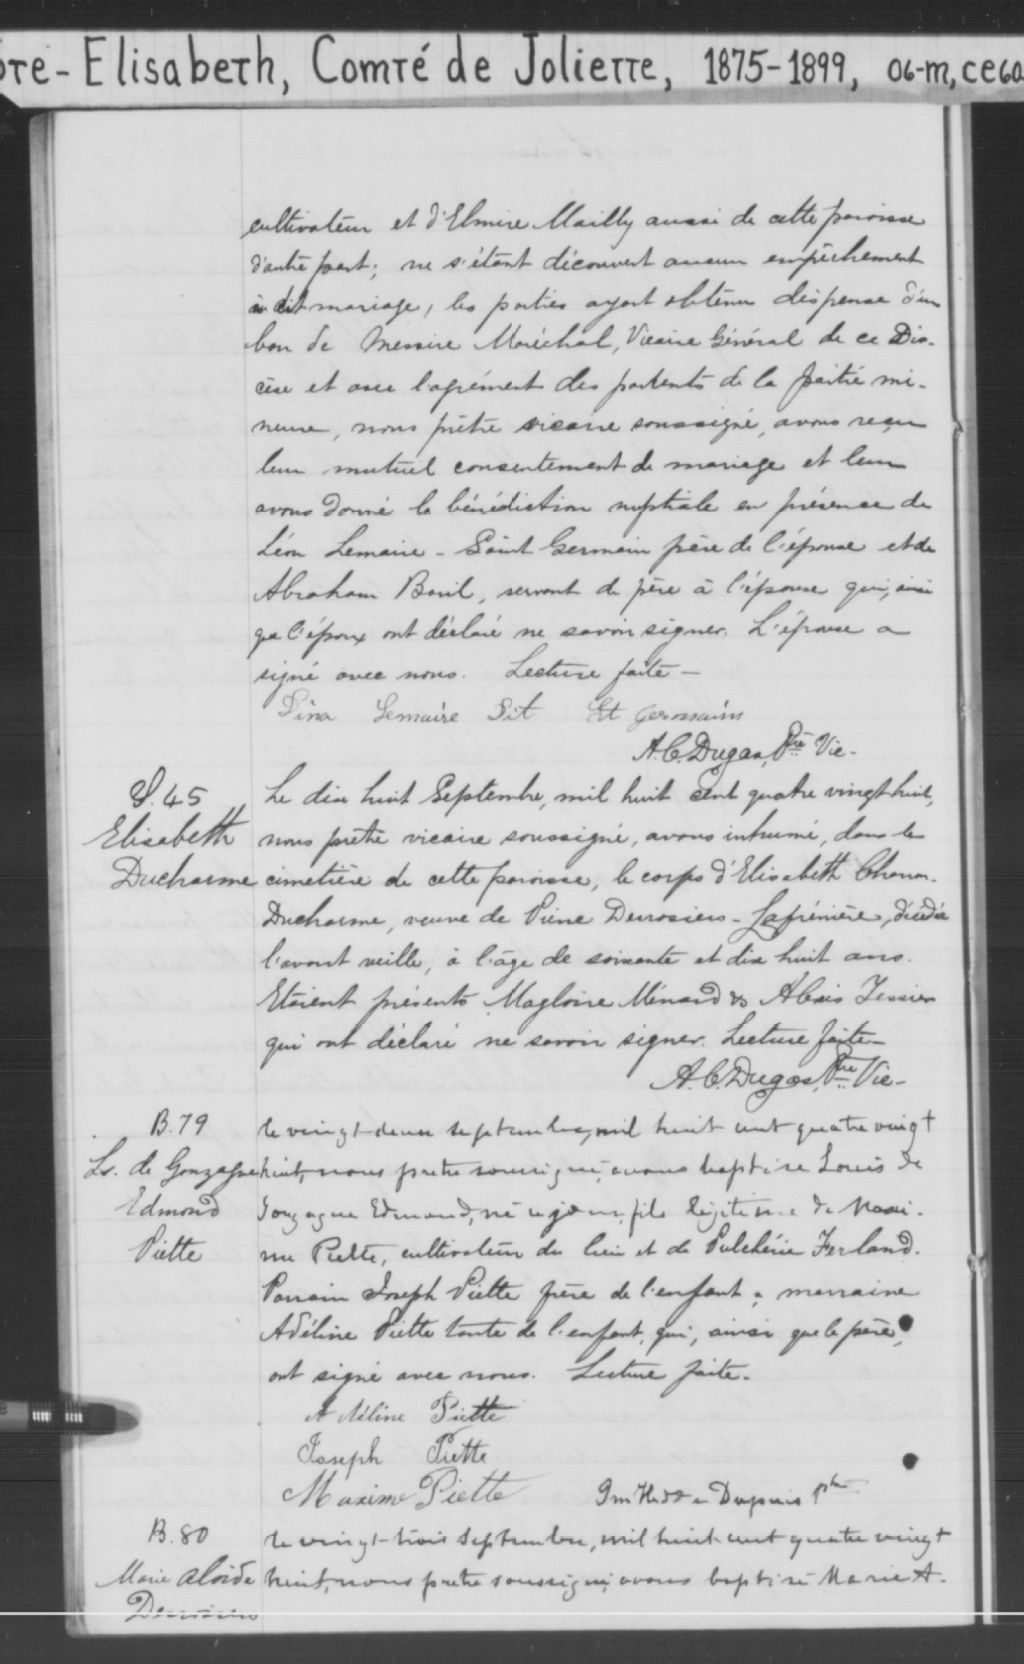 re-Elisabeth, Comté de Joliette, 1875-1899, 06-m, ce60
cultivateur et d'Elmire Mailly aussi de cette paroisse
d'autre part; ne s'étant découvert aucun empêchement
au dit mariage, les parties ayant obtenu dispense d'un
ban de Messire Maréchal, Vicaire Général de ce Dio-
cèse et avec l'agrément des parents de la partie mi-
neure, nous prêtre vicaire soussigné, avons reçu
leur mutuel consentement de mariage et leur
avons donné la bénédiction nuptiale en présence de
Léon Lemaire-Saint Germain père de l'épouse et de
Abraham Baril, servant de père à l'épouse qui, ainsi
que l'époux ont déclaré ne savoir signer. L'épouse a
signé avec nous. Lecture faite-
Lemaire Dit St germains
A.C. Dugas, Ptre Vic-
S. 45
Elisabeth
Ducharme
Le dix huit Septembre, mil huit cent quatre vingt huit,
nous prêtre vicaire soussigné, avons inhumé, dans le
cimetière de cette paroisse, le corps d'Elisabeth
Ducharme, veuve de Pierre Desrosiers-Lafrénière, décédée
l'avant veille, à l'âge de soixante et dix huit ans.
Etaient présents Magloire Ménard & Alexis Tessier
qui ont déclaré ne savoir signer. Lecture faite-
A.C. Dugas, Ptre Vic-
B. 79
Ls. de Gonzague
Edmond
Piette
le vingt-deux septembre, mil huit cent quatre vingt
huit, nous prêtre soussigné, avons baptisé Louis de
Gonzague Edmond, né ce jour, fils légitime de Maxi-
me Piette, cultivateur du lieu et de Pulchérie Ferland.
Parrain Joseph Piette frère de l'enfant, marraine
Adéline Piette tante de l'enfant, qui, ainsi que le père,
ont signé avec nous. Lecture faite.
Adéline Piette
Joseph Piette
Maxime Piette
Dupuis Ptre
B. 80
Marie Aloïde
Desrosiers
le vingt-trois septembre, mil huit cent quatre vingt
huit, nous prêtre soussigné, avons baptisé Marie A-